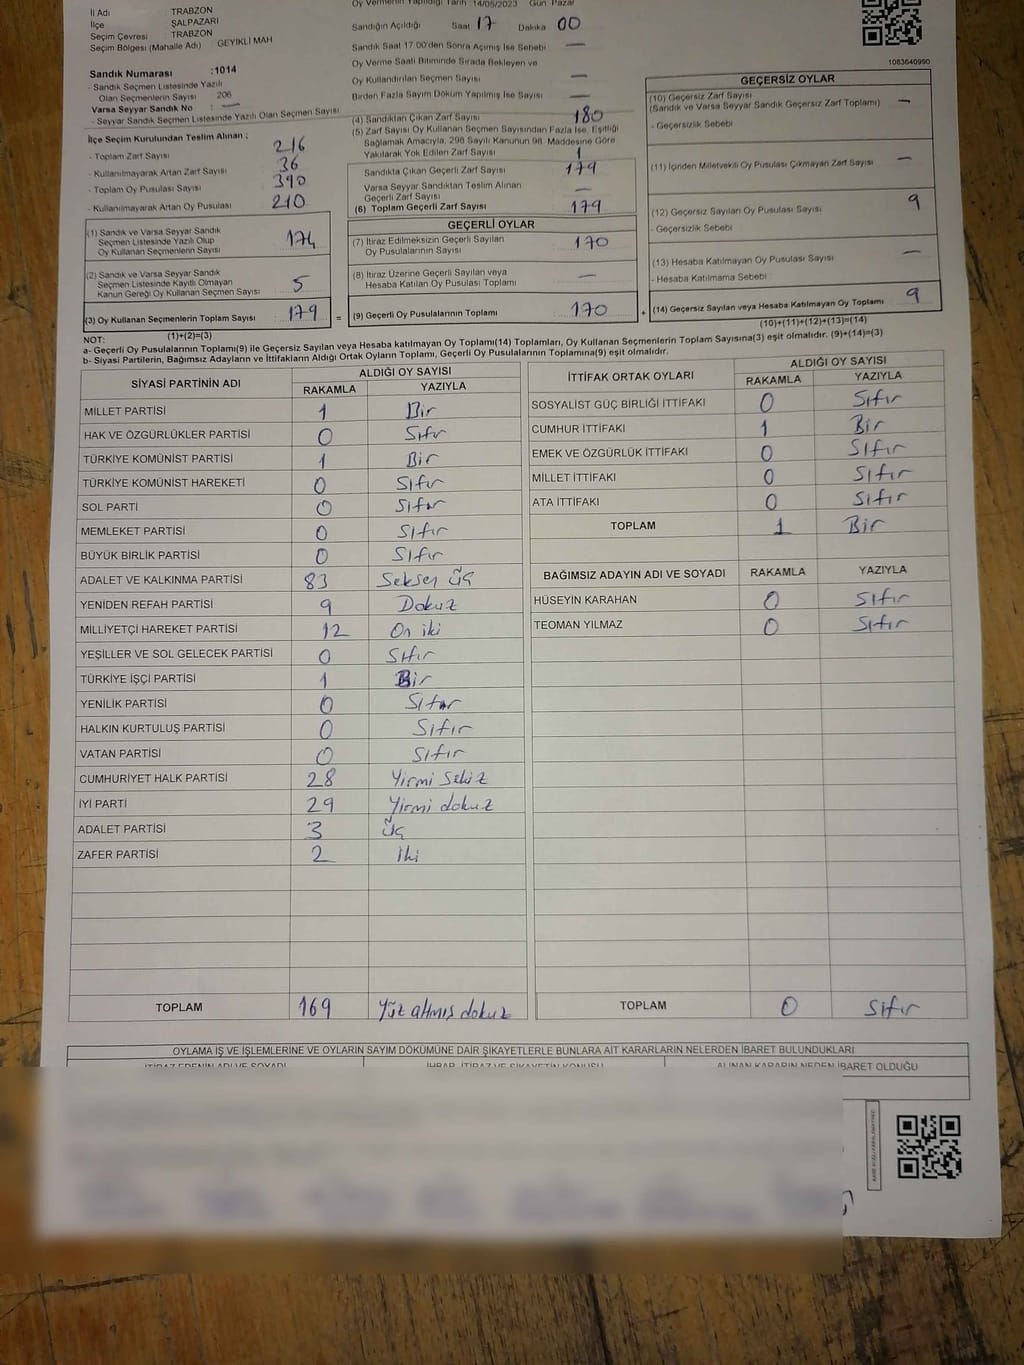 İl Adı TRABZON
İlçe ŞALPAZARI
Seçim Çevresi TRABZON
Seçim Bölgesi (Mahalle Adı) GEYİKLİ MAH
Sandık Numarası :1014
- Sandık Seçmen Listesinde Yazılı
Olan Seçmenlerin Sayısı 206
Varsa Seyyar Sandık No : —
- Seyyar Sandık Seçmen Listesinde Yazılı Olan Seçmen Sayısı
İlçe Seçim Kurulundan Teslim Alınan ;
- Toplam Zarf Sayısı 216
- Kullanılmayarak Artan Zarf Sayısı 36
- Toplam Oy Pusulası Sayısı 390
- Kullanılmayarak Artan Oy Pusulası 210
(1) Sandık ve Varsa Seyyar Sandık
Seçmen Listesinde Yazılı Olup
Oy Kullanan Seçmenlerin Sayısı 174
(2) Sandık ve Varsa Seyyar Sandık
Seçmen Listesinde Kayıtlı Olmayan
Kanun Gereği Oy Kullanan Seçmen Sayısı 5
(3) Oy Kullanan Seçmenlerin Toplam Sayısı 179
(1)+(2)=(3)
Oy Vermenin Yapıldığı Tarih 14/05/2023 Gün Pazar
Sandığın Açıldığı Saat 17 Dakika 00
Sandık Saat 17.00'den Sonra Açımış İse Sebebi —
Oy Verme Saati Bitiminde Sırada Bekleyen ve
Oy Kullandırılan Seçmen Sayısı —
Birden Fazla Sayım Döküm Yapılmış İse Sayısı —
(4) Sandıktan Çıkan Zarf Sayısı 180
(5) Zarf Sayısı Oy Kullanan Seçmen Sayısından Fazla İse, Eşitliği
Sağlamak Amacıyla, 298 Sayılı Kanunun 98. Maddesine Göre
Yakılarak Yok Edilen Zarf Sayısı 1
Sandıkta Çıkan Geçerli Zarf Sayısı 179
Varsa Seyyar Sandıktan Teslim Alınan
Geçerli Zarf Sayısı —
(6) Toplam Geçerli Zarf Sayısı 179
GEÇERLİ OYLAR
(7) İtiraz Edilmeksizin Geçerli Sayılan
Oy Pusulalarının Sayısı 170
(8) İtiraz Üzerine Geçerli Sayılan veya
Hesaba Katılan Oy Pusulası Toplamı —
= (9) Geçerli Oy Pusulalarının Toplamı 170 +
1083640990
GEÇERSİZ OYLAR
(10) Geçersiz Zarf Sayısı
(Sandık ve Varsa Seyyar Sandık Geçersiz Zarf Toplamı) —
- Geçersizlik Sebebi
(11) İçinden Milletvekili Oy Pusulası Çıkmayan Zarf Sayısı —
(12) Geçersiz Sayılan Oy Pusulası Sayısı 9
- Geçersizlik Sebebi
(13) Hesaba Katılmayan Oy Pusulası Sayısı —
- Hesaba Katılmama Sebebi
(14) Geçersiz Sayılan veya Hesaba Katılmayan Oy Toplamı 9
(10)+(11)+(12)+(13)=(14)
NOT:
a- Geçerli Oy Pusulalarının Toplamı(9) ile Geçersiz Sayılan veya Hesaba katılmayan Oy Toplamı(14) Toplamları, Oy Kullanan Seçmenlerin Toplam Sayısına(3) eşit olmalıdır. (9)+(14)=(3)
b- Siyasi Partilerin, Bağımsız Adayların ve İttifakların Aldığı Ortak Oyların Toplamı, Geçerli Oy Pusulalarının Toplamına(9) eşit olmalıdır.
SİYASİ PARTİNİN ADI ALDIĞI OY SAYISI
RAKAMLA YAZIYLA
MİLLET PARTİSİ 1 Bir
HAK VE ÖZGÜRLÜKLER PARTİSİ 0 Sıfır
TÜRKİYE KOMÜNİST PARTİSİ 1 Bir
TÜRKİYE KOMÜNİST HAREKETİ 0 Sıfır
SOL PARTİ 0 Sıfır
MEMLEKET PARTİSİ 0 Sıfır
BÜYÜK BİRLİK PARTİSİ 0 Sıfır
ADALET VE KALKINMA PARTİSİ 83 Seksen üç
YENİDEN REFAH PARTİSİ 9 Dokuz
MİLLİYETÇİ HAREKET PARTİSİ 12 On iki
YEŞİLLER VE SOL GELECEK PARTİSİ 0 Sıfır
TÜRKİYE İŞÇİ PARTİSİ 1 Bir
YENİLİK PARTİSİ 0 Sıfır
HALKIN KURTULUŞ PARTİSİ 0 Sıfır
VATAN PARTİSİ 0 Sıfır
CUMHURİYET HALK PARTİSİ 28 Yirmi sekiz
İYİ PARTİ 29 Yirmi dokuz
ADALET PARTİSİ 3 Üç
ZAFER PARTİSİ 2 İki
TOPLAM 169 Yüz altmış dokuz
İTTİFAK ORTAK OYLARI ALDIĞI OY SAYISI
RAKAMLA YAZIYLA
SOSYALİST GÜÇ BİRLİĞİ İTTİFAKI 0 Sıfır
CUMHUR İTTİFAKI 1 Bir
EMEK VE ÖZGÜRLÜK İTTİFAKI 0 Sıfır
MİLLET İTTİFAKI 0 Sıfır
ATA İTTİFAKI 0 Sıfır
TOPLAM 1 Bir
BAĞIMSIZ ADAYIN ADI VE SOYADI RAKAMLA YAZIYLA
HÜSEYİN KARAHAN 0 Sıfır
TEOMAN YILMAZ 0 Sıfır
TOPLAM 0 Sıfır
OYLAMA İŞ VE İŞLEMLERİNE VE OYLARIN SAYIM DÖKÜMÜNE DAİR ŞİKAYETLERLE BUNLARA AİT KARARLARIN NELERDEN İBARET BULUNDUKLARI
İTİRAZ EDENİN ADI VE SOYADI İHBAR, İTİRAZ VE ŞİKAYETİN KONUSU ALINAN KARARIN NEDEN İBARET OLDUĞU